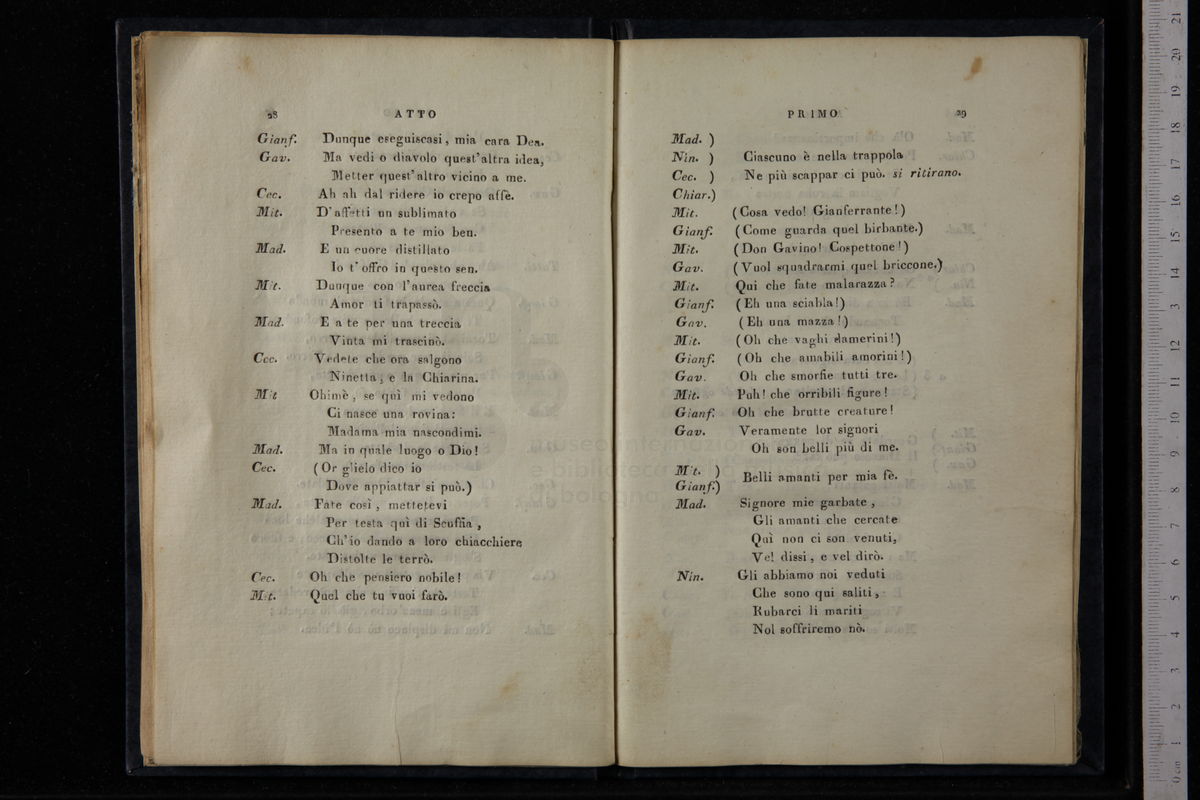 28 ATTO
Gianf. Dunque eseguiscasi, mia cara Dea.
Gav. Ma vedi o diavolo quest'altra idea,
Metter quest'altro vicino a me.
Cec. Ah ah dal ridere io crepo affè.
Mit. D'affetti un sublimato
Presento a te mio ben.
Mad. E un cuore distillato
Io t'offro in questo sen.
Mit. Dunque con l'aurea freccia
Amor ti trapassò.
Mad. E a te per una treccia
Vinta mi trascinò.
Cec. Vedete che ora salgono
Ninetta, e la Chiarina.
Mit Ohimè, se quì mi vedono
Ci nasce una rovina:
Madama mia nascondimi.
Mad. Ma in quale luogo o Dio!
Cec. (Or glielo dico io
Dove appiattar si può.)
Mad. Fate così, mettetevi
Per testa quì di Scuffia,
Ch'io dando a loro chiacchiere
Distolte le terrò.
Cec. Oh che pensiero nobile!
Mit. Quel che tu vuoi farò.
PRIMO 29
Mad. )
Nin. ) Ciascuno è nella trappola
Cec. ) Ne più scappar ci può. si ritirano.
Chiar.)
Mit. (Cosa vedo! Gianferrante!)
Gianf. (Come guarda quel birbante.)
Mit. (Don Gavino! Cospettone!)
Gav. (Vuol squadrarmi quel briccone.)
Mit. Qui che fate malarazza?
Gianf. (Eh una sciabla!)
Gav. (Eh una mazza!)
Mit. (Oh che vaghi damerini!)
Gianf. (Oh che amabili amorini!)
Gav. Oh che smorfie tutti tre.
Mit. Puh! che orribili figure!
Gianf. Oh che brutte creature!
Gav. Veramente lor signori
Oh son belli più di me.
Mit. )
Gianf.) Belli amanti per mia fè.
Mad. Signore mie garbate,
Gli amanti che cercate
Quì non ci son venuti,
Vel dissi, e vel dirò.
Nin. Gli abbiamo noi veduti
Che sono qui saliti,
Rubarci li mariti
Nol soffriremo nò.
museo
e biblioteca
di bologna